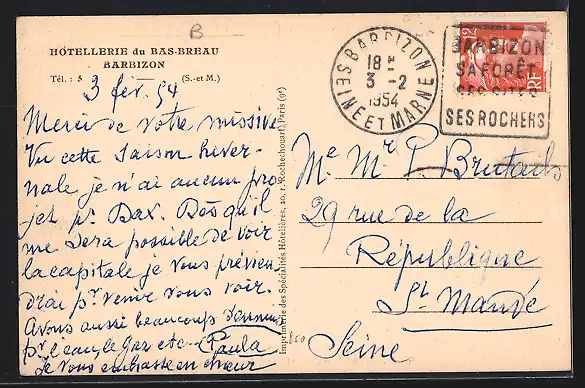 B
HÔTELLERIE du BAS-BREAU
BARBIZON
Tél. : 5 (S.-et-M.)
3 fev. 54
Merci de votre missive
Vu cette saison hiver-
nale je n'ai aucun pro
jet pr. Dax. Dès qu'il
me sera possible de voir
la capitale je vous prévien-
drai pr venir vous voir.
Avons aussi beaucoup d'ennuis
pr l'eau, le gaz etc - Paula
Je vous embrasse en chœur
Imprimerie des Spécialités Hôtelières, 20, r. Rochechouart, Paris (9e)
BARBIZON
18 H
3 -2
1954
SEINE ET MARNE
BARBIZON
SA FORÊT
SES SITES
SES ROCHERS
RF
Me Mr P. Brutails
29 rue de la
République
St. Mandé
Seine